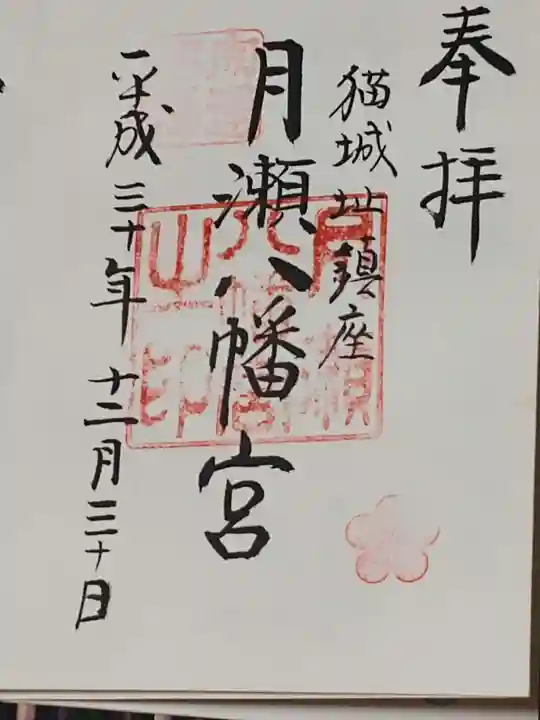 奉拝
猫城址鎮座
月瀬八幡宮
平成三十年十二月三十日